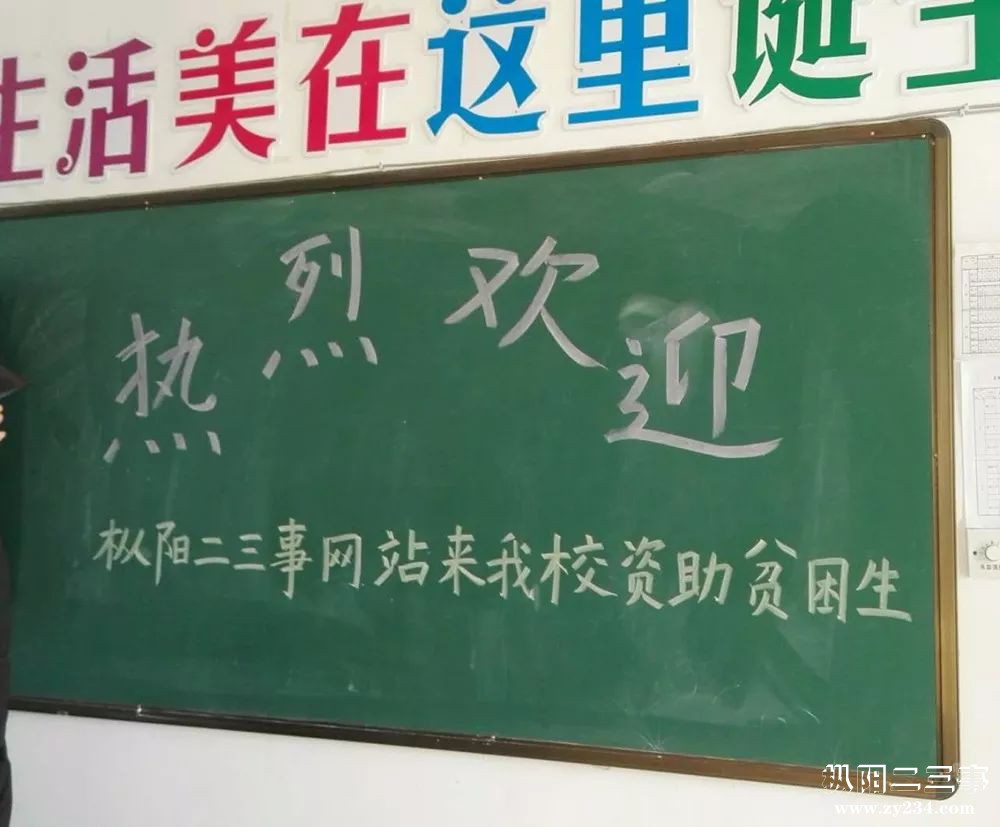 生活美在这里诞生
热烈欢迎
枞阳二三事网站来我校资助贫困生
枞阳二三事
www.zy234.com